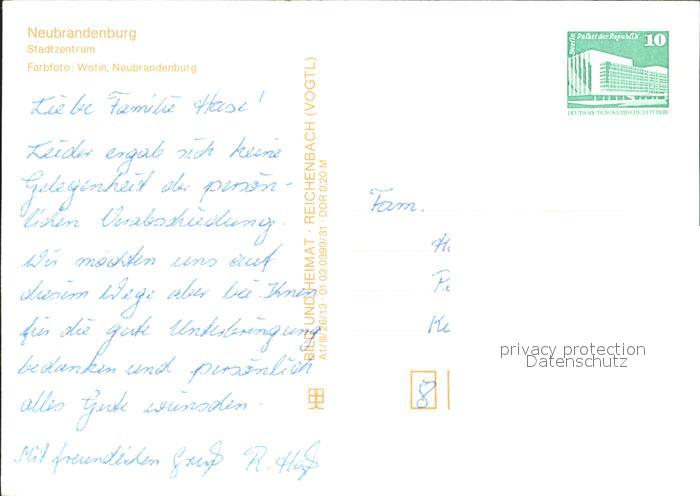 Neubrandenburg
Stadtzentrum
Farbfoto: Wotin, Neubrandenburg
Liebe Familie Hase!
Leider ergab sich keine
Gelegenheit der persön-
lichen Verabschiedung.
Wir möchten uns auf
diesem Wege aber bei Ihnen
für die gute Unterbringung
bedanken und persönlich
alles Gute wünschen.
Mit freundlichen Gruß R.
BILD UND HEIMAT · REICHENBACH (VOGTL)
A1/III/26/13 · 01 03 0399/31 · DDR 0,20 M
Berlin Palast der Republik 10
DEUTSCHE DEMOKRATISCHE REPUBLIK
Fam.
8
privacy protection
Datenschutz